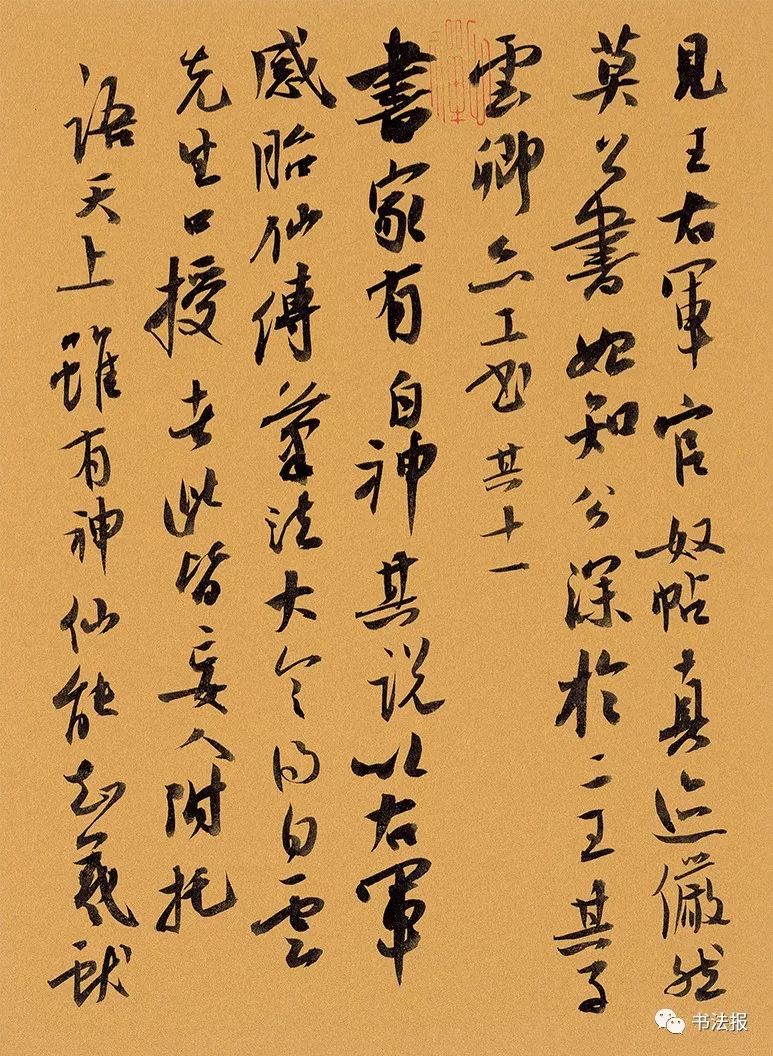 見王右軍官奴帖真迹儼然
莫公書始知公深於二王其子
雲卿亦工書其十一
書家有自神其説以右軍
感胎仙傳筆法大令得白雲
先生口授者此皆妄人附托
語天上雖有神仙能知羲獻
书法报